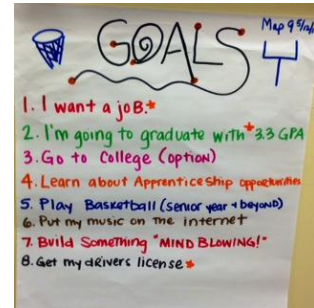 GOALS
1. I want a joB.*
2. I'm going to graduate with *3.3 GPA
3. Go to College (option)
4. Learn about Apprenticeship opportunities
5. Play Basketball (senior year + beyond)
6. Put my music on the internet
7. Build Something "MIND BLOWING!"
8. Get my drivers license *